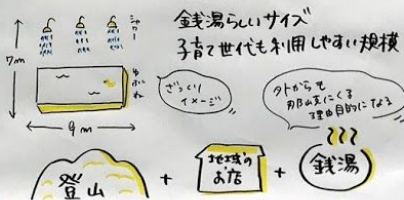 シャワー
銭湯らしいサイズ
子育て世代も利用しやすい規模
7m
ゆぶね
ざっくり
イメージ
9m
外からも
那岐に来る
理由目的になる
登山
+
地域の
お店
+
銭湯